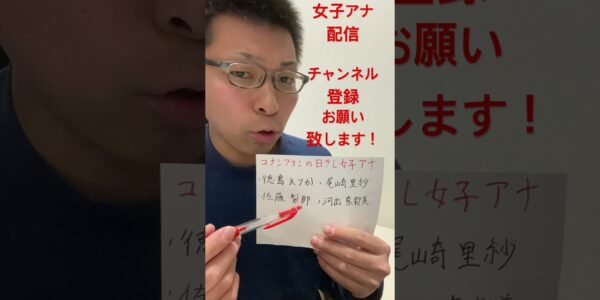 女子アナ
配信
チャンネル
登録
お願い
致します！
コナンファンの日テレ女子アナ
・徳島えりか ・尾崎里紗
・佐藤梨那 ・河出奈都美